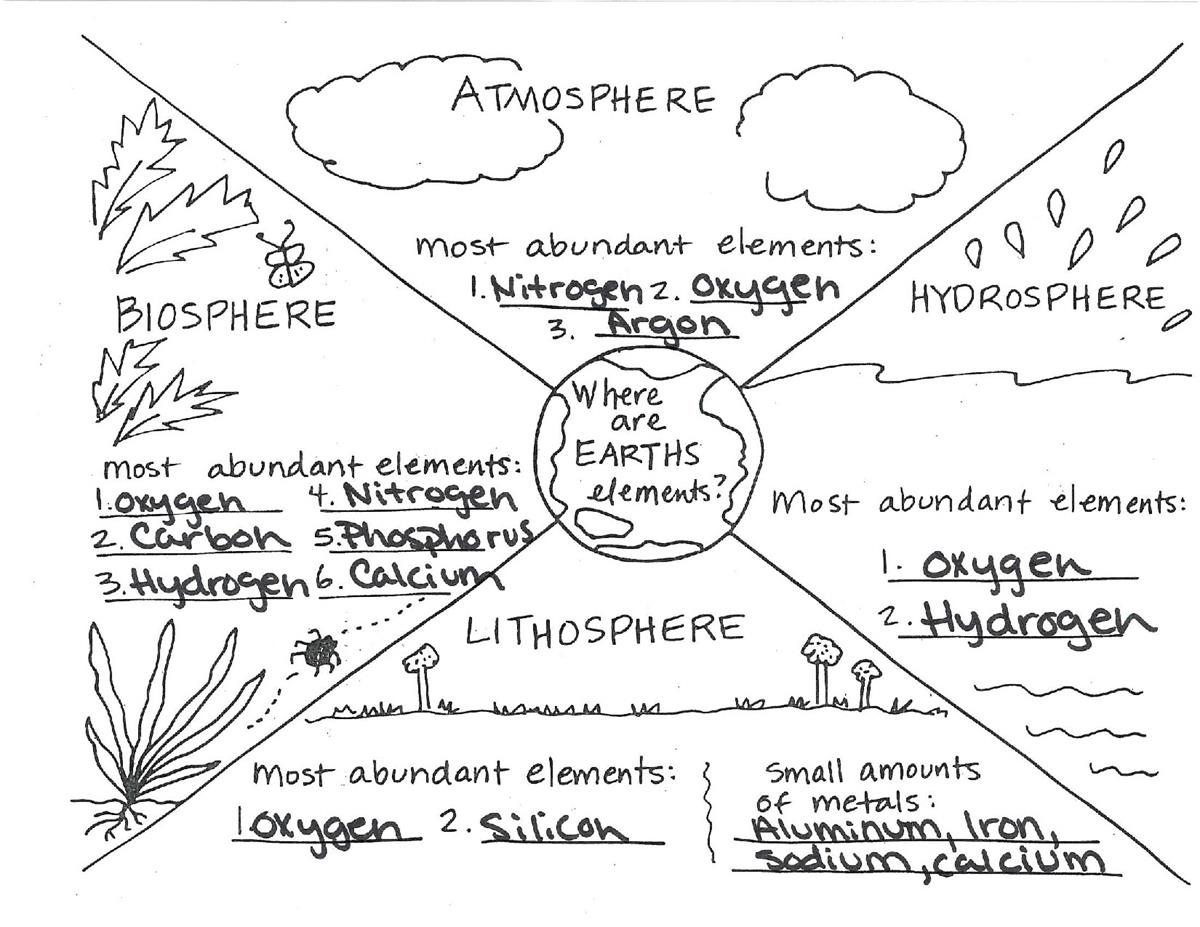 ATMOSPHERE
most abundant elements:
1. Nitrogen 2. Oxygen
3. Argon
BIOSPHERE
most abundant elements:
1. Oxygen 4. Nitrogen
2. Carbon 5. Phosphorus
3. Hydrogen 6. Calcium
Where
are
EARTHS
elements?
HYDROSPHERE
Most abundant elements:
1. Oxygen
2. Hydrogen
LITHOSPHERE
Most abundant elements:
1. Oxygen 2. Silicon
Small amounts
of metals:
Aluminum, Iron,
Sodium, Calcium